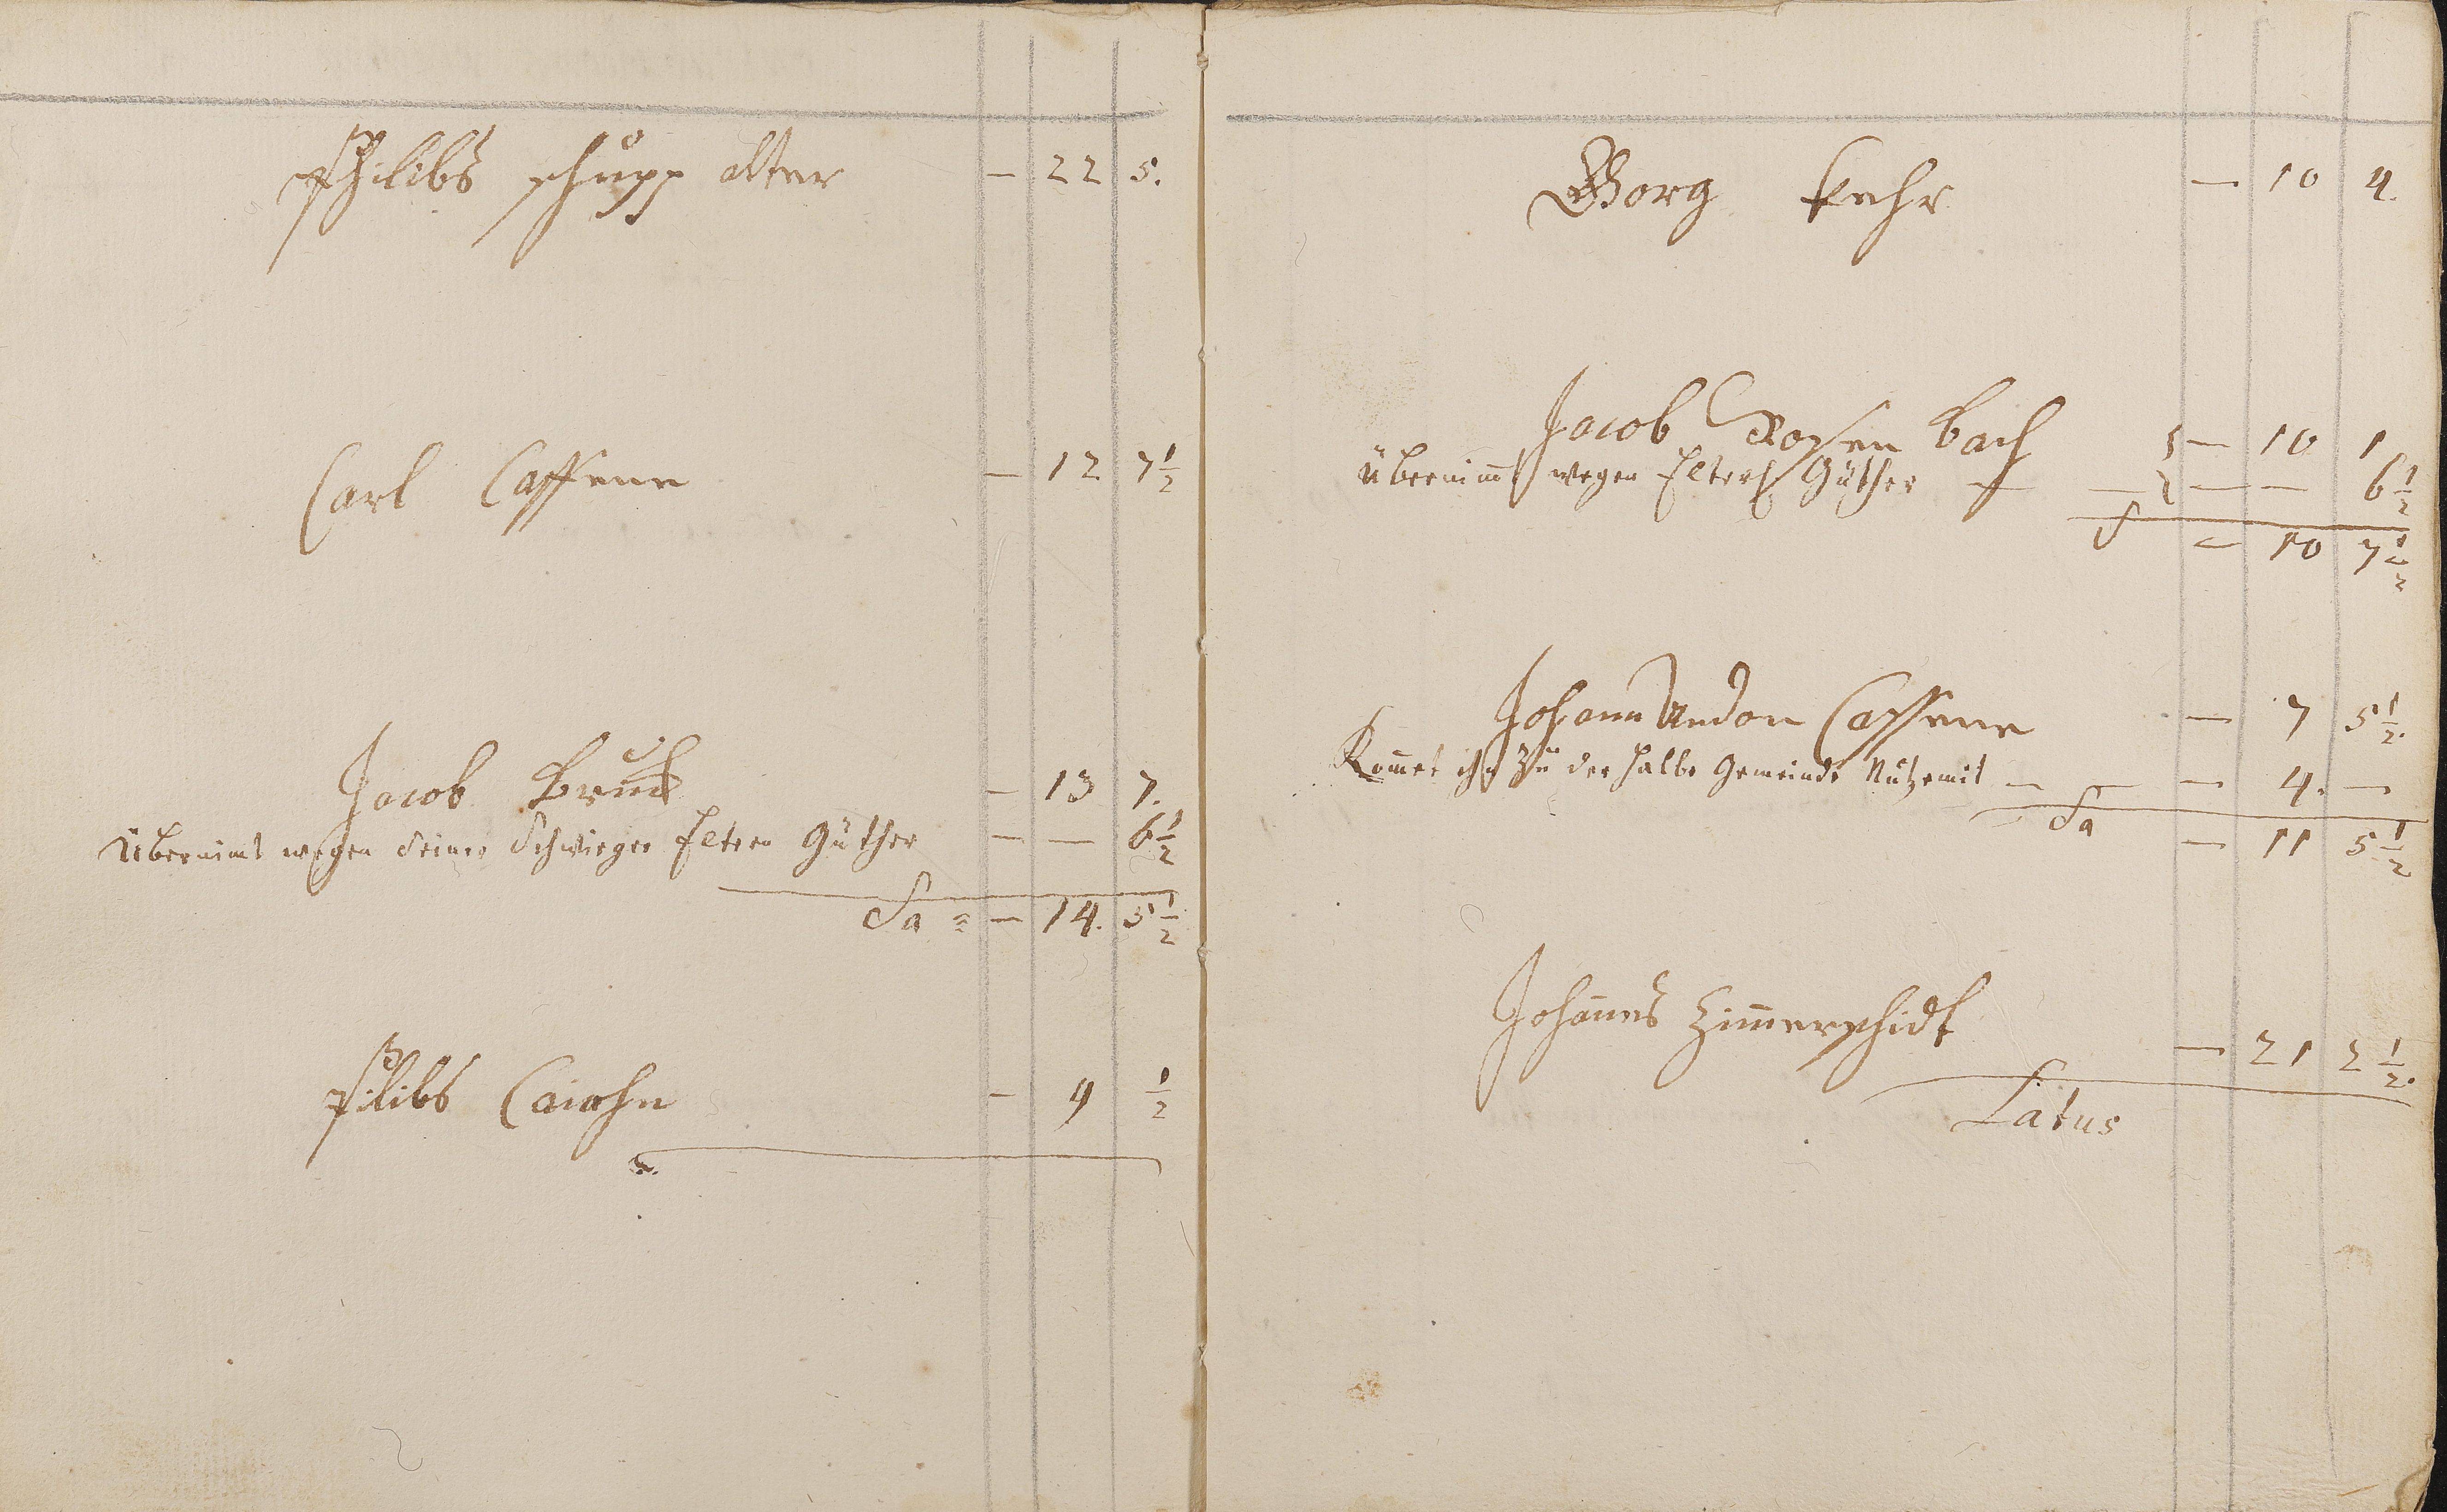 Philibs schupp alter — 22 5.
Carl Cassene — 12 7½
Jacob Bruch — 13 7.
Übernimt wegen Seiner Schwieger Eltern Güther — — 6½
Sa = — 14. 5½
Pilibs — 4 ½
Gorg Fehr — 10 4.
Jacob Rosen bach — 10 1
Übernimt wegen Güther — — — — 6½
S — 10 7½
Johann Andon Cassene — 7 5½.
Komet ihn Zu der halbe Gemeinds Nutze mit — — — 4. —
Sa — 11 5½
Johanes Zimerschidt — 21 2½.
Latus